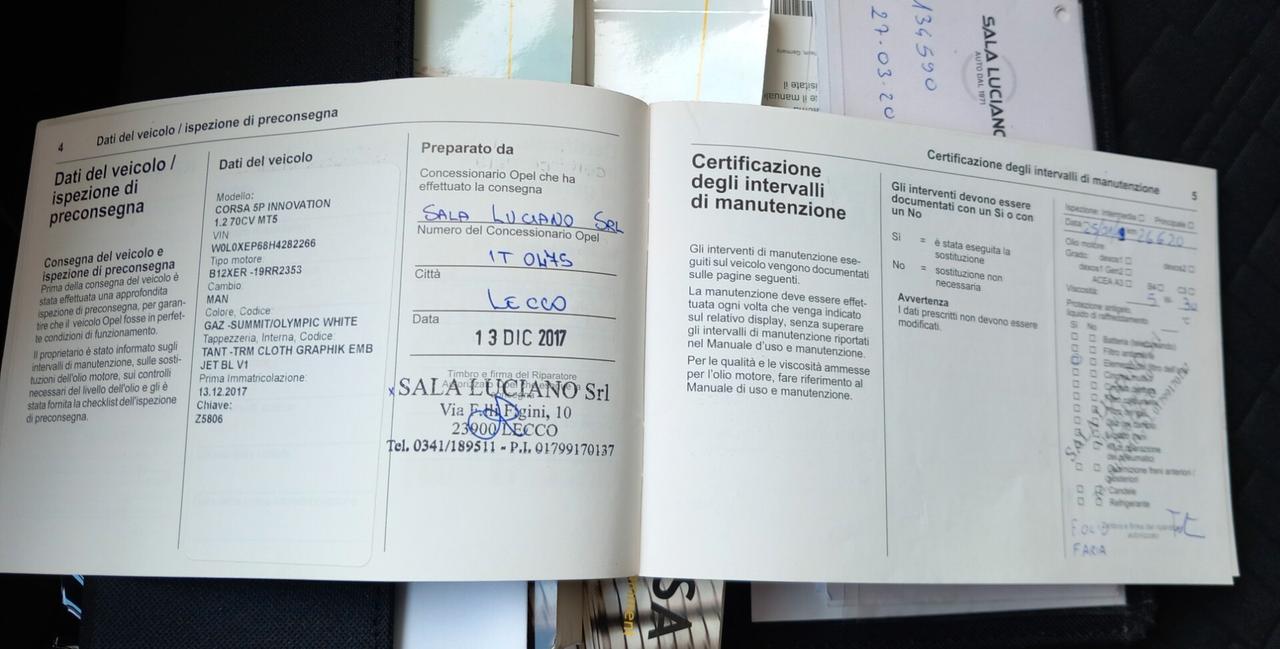 134590
27.03.20
SALA LUCIANO
AUTO DAL 1971
4 Dati del veicolo / ispezione di preconsegna
Dati del veicolo /
ispezione di
preconsegna
Consegna del veicolo e
ispezione di preconsegna
Prima della consegna del veicolo è
stata effettuata una approfondita
ispezione di preconsegna, per garan-
tire che il veicolo Opel fosse in perfet-
te condizioni di funzionamento.
Il proprietario è stato informato sugli
intervalli di manutenzione, sulle sosti-
tuzioni dell'olio motore, sui controlli
necessari del livello dell'olio e gli è
stata fornita la checklist dell'ispezione
di preconsegna.
Dati del veicolo
Modello:
CORSA 5P INNOVATION
1.2 70CV MT5
VIN
W0L0XEP68H4282266
Tipo motore
B12XER -19RR2353
Cambio
MAN
Colore, Codice:
GAZ -SUMMIT/OLYMPIC WHITE
Tappezzeria, Interna, Codice
TANT -TRM CLOTH GRAPHIK EMB
JET BL V1
Prima Immatricolazione:
13.12.2017
Chiave:
Z5806
Preparato da
Concessionario Opel che ha
effettuato la consegna
SALA LUCIANO SRL
Numero del Concessionario Opel
IT 0475
Città
LECCO
Data
13 DIC 2017
Timbro e firma del Riparatore
SALA LUCIANO Srl
Via F.lli Figini, 10
23900 LECCO
Tel. 0341/189511 - P.I. 01799170137
Certificazione degli intervalli di manutenzione 5
Certificazione
degli intervalli
di manutenzione
Gli interventi di manutenzione ese-
guiti sul veicolo vengono documentati
sulle pagine seguenti.
La manutenzione deve essere effet-
tuata ogni volta che venga indicato
sul relativo display, senza superare
gli intervalli di manutenzione riportati
nel Manuale d'uso e manutenzione.
Per le qualità e le viscosità ammesse
per l'olio motore, fare riferimento al
Manuale di uso e manutenzione.
Gli interventi devono essere
documentati con un Si o con
un No
Si = è stata eseguita la
sostituzione
No = sostituzione non
necessaria
Avvertenza
I dati prescritti non devono essere
modificati.
Ispezione: Intermedia Principale
Data km 26620
Olio motore
Grado: dexos1 dexos2
dexos1 Gen2
ACEA A3 B4 C3
Viscosità: 5 W- 30
Protezione antigelo
liquido di raffreddamento °C
Si No
Candele
Refrigerante
FARIA